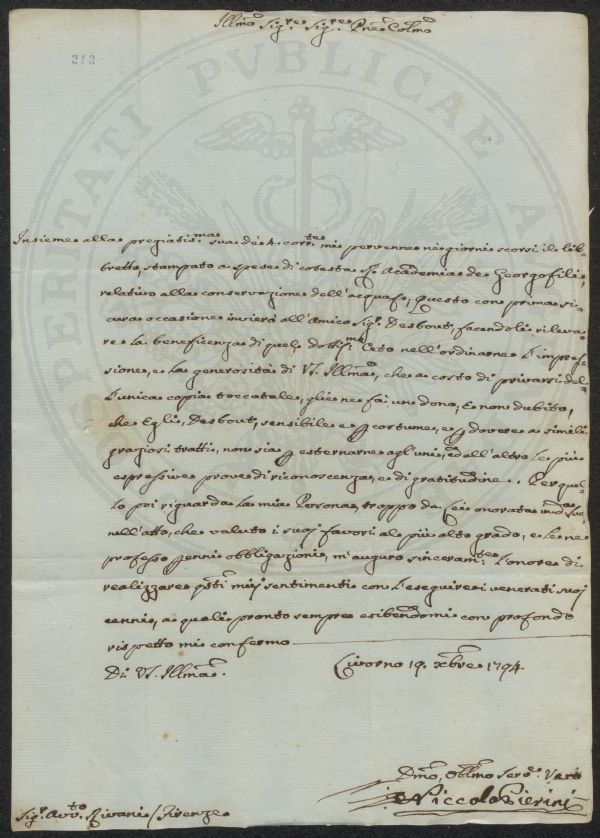 Illmo Sigre Sigre Pne Colmo
213
PROSPERITATI PVBLICAE
Insieme alla pregiatisma sua de 4. corrte mi pervenne ne giorni scorsi il lib-
bretto stampato a spese di cotesta Rl Academia de Georgofili,
relativo alla conservazione dell'acqua ; Questo con prima si-
cura occasione invierò all'amico Sigr Desbout, facendoli rileva-
re la beneficenza di quel dottismo Ceto nell'ordinarne l'impres-
sione, e la generosità di VS. Illma, che a costo di privarsi del-
l'unica copia toccatale, glie ne fa un dono, E non dubito,
che Egli, Desbout, sensibile e p costume, e p dovere a simili
graziosi tratti, non sia p esternarne agl'uni, ed all'altro le più
espressive prove di riconoscenza, e di gratitudine. Per quel-
lo poi riguarda la mia Persona, troppo da Lei onorata,
nell'atto, che valuto i suoi favori al più alto grado, e Le ne
professo obbligazioni, m'auguro sinceramte l'onore di
realizzare qsti miej sentimenti con l'eseguire i venerati suoj
cenni, a quali pronto sempre esibendomi con profondo
rispetto mi confermo
Di VS. Illma. Livorno 19. Xbre 1794.
Dmo, Obblmo Serv. Vero
Niccola Pierini
Sigr Avvto Rivani / Firenze